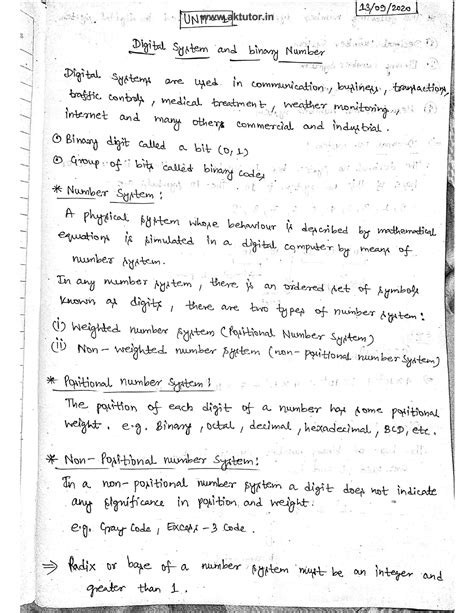 13/09/2020
UNIT-1
www.aktutor.in
Digital System and binary Number
Digital Systems are used in communication, business, transactions,
traffic control, medical treatment, weather monitoring,
internet and many others commercial and industrial.
⊙ Binary digit called a bit (0,1)
⊙ Group of bits called binary codes
* Number System :
A physical system whose behaviour is described by mathematical
equations is simulated in a digital computer by means of
number system.
In any number system, there is an ordered set of symbols
known as digits, there are two types of number system:
(i) Weighted number system (Positional Number System)
(ii) Non-weighted number system (non-positional number System)
* Positional number System :
The position of each digit of a number has some positional
weight. e.g. Binary, octal, decimal, hexadecimal, BCD, etc.
* Non-Positional number System:
In a non-positional number system a digit does not indicate
any significance in position and weight.
e.g. Gray Code, Excess-3 Code.
⇒ Radix or base of a number system must be an integer and
greater than 1.